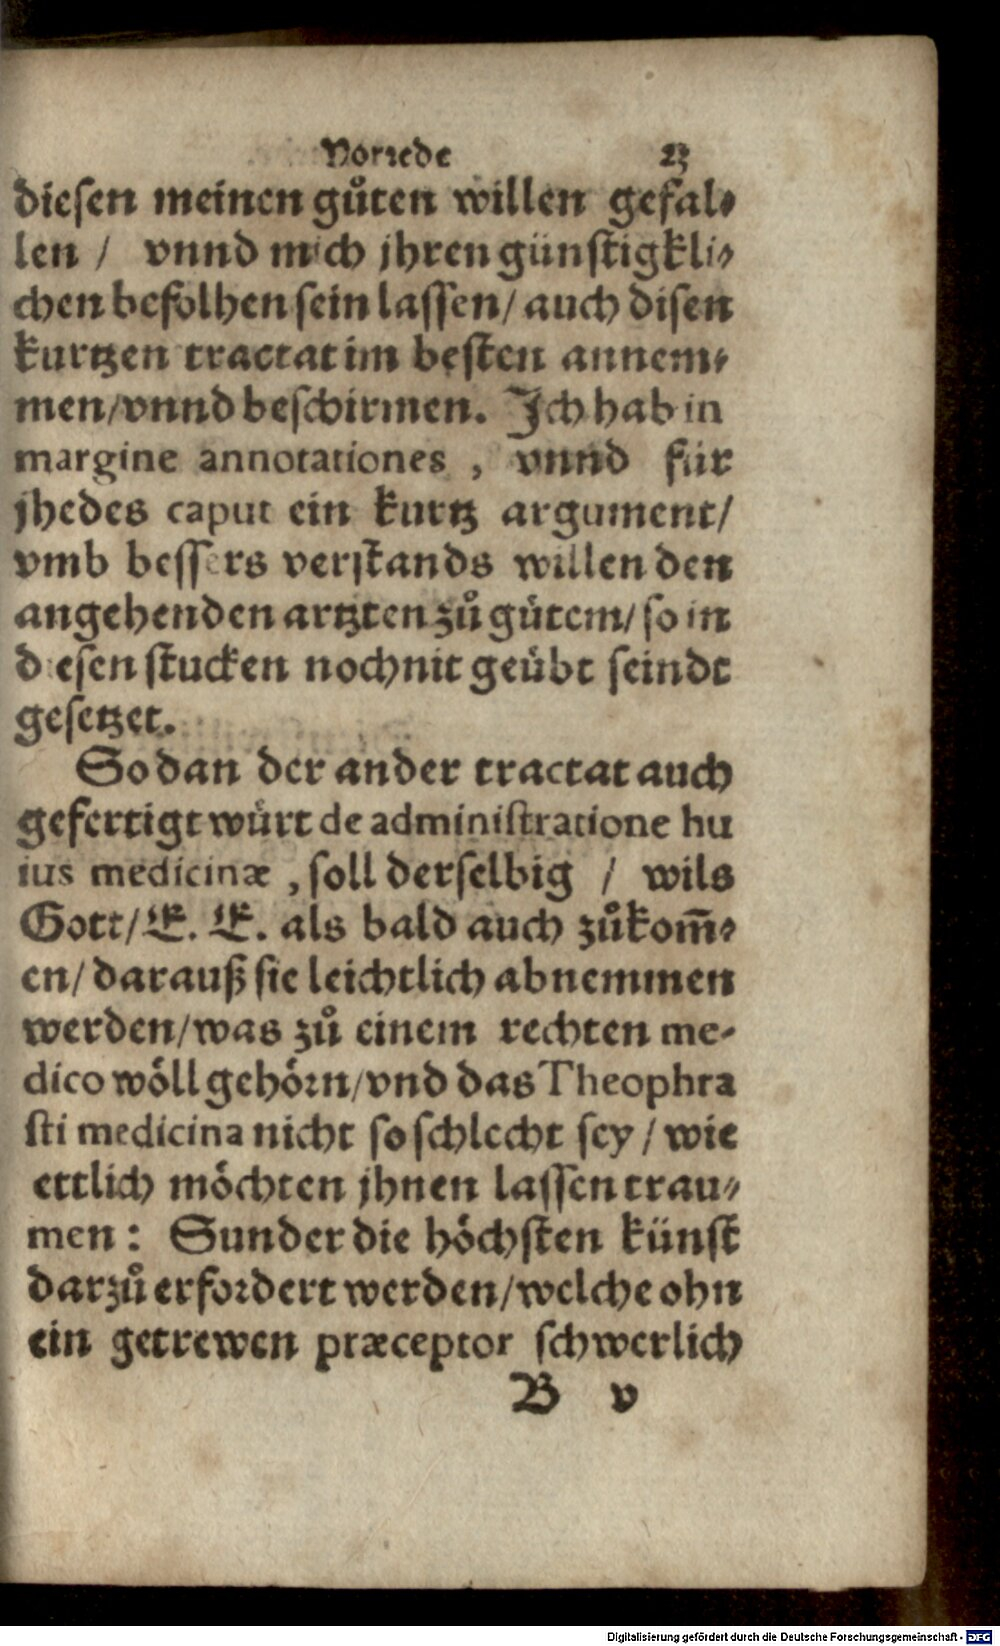 Vorrede 23
diesen meinen gůten willen gefal⸗
len / vnnd mich jhren günstigkli⸗
chen befolhen sein lassen / auch disen
kurtzen tractat im besten annem⸗
men / vnnd beschirmen. Ich hab in
margine annotationes , vnnd für
jhedes caput ein kurtz argument /
vmb bessers verstands willen den
angehenden artzten zů gůtem / so in
diesen stucken noch nit geübt seindt
gesetzet.
So dan der ander tractat auch
gefertigt würt de administratione hu
ius medicinæ , soll derselbig / wils
Gott / E. E. als bald auch zůkom̄⸗
en / darauß sie leichtlich abnemmen
werden / was zů einem rechten me-
dico wöll gehörn / vnd das Theophra
sti medicina nicht so schlecht sey / wie
ettlich möchten jhnen lassen trau⸗
men : Sunder die höchsten künst
darzů erfordert werden / welche ohn
ein getrewen præceptor schwerlich
B v
Digitalisierung gefördert durch die Deutsche Forschungsgemeinschaft - DFG